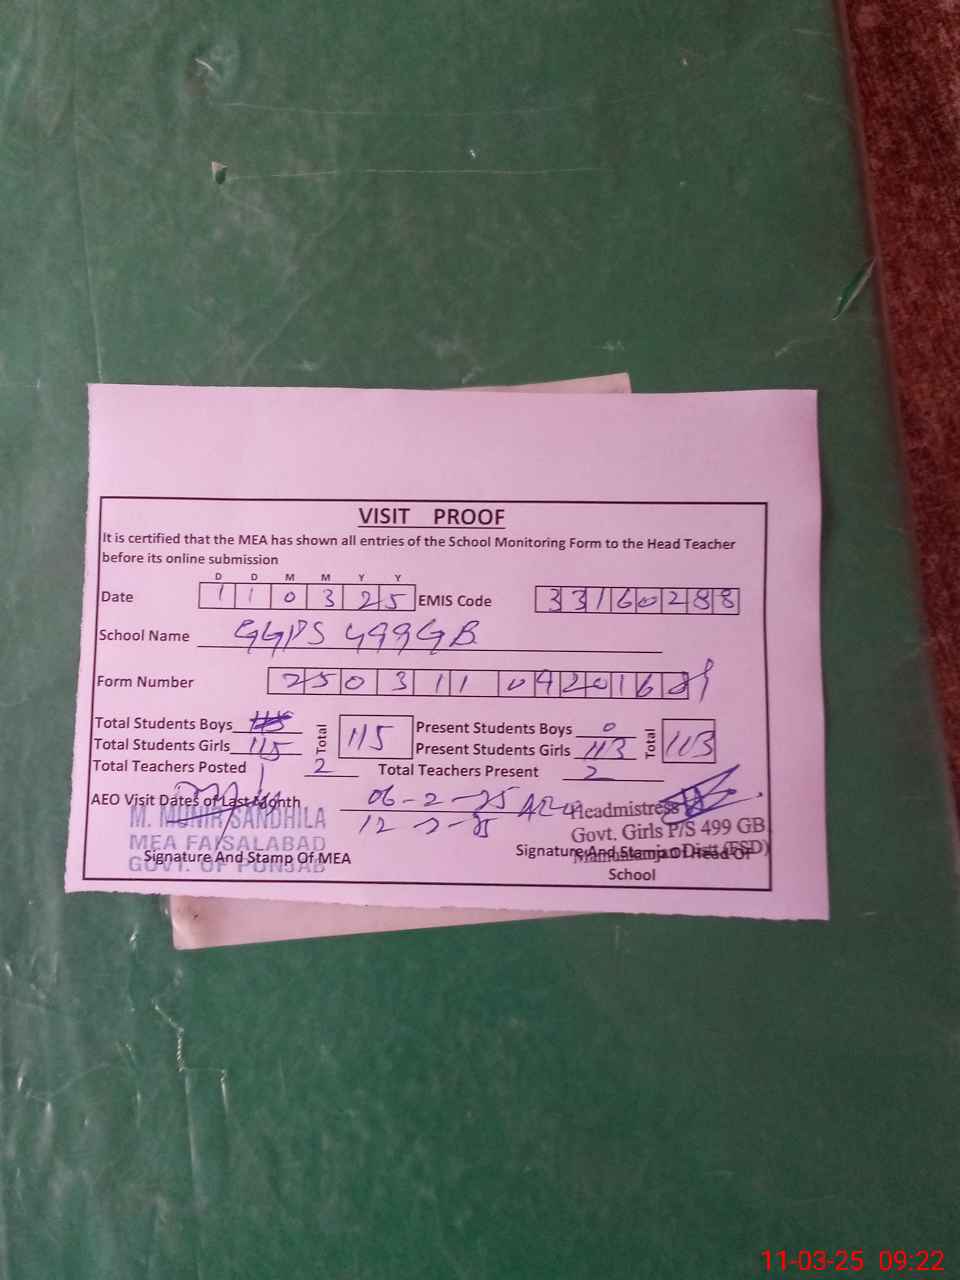 VISIT PROOF
It is certified that the MEA has shown all entries of the School Monitoring Form to the Head Teacher
before its online submission
D D M M Y Y
Date 1 1 0 3 2 5 EMIS Code 3 3 1 6 0 2 8 8
School Name GGPS 499 GB
Form Number 2 5 0 3 1 1 0 9 2 0 1 6
Total Students Boys Total 115 Present Students Boys 0 Total 113
Total Students Girls 115 Present Students Girls 113
Total Teachers Posted 2 Total Teachers Present 2
AEO Visit Dates of Last Month 06-2-25
12-2-25
Headmistress
M. MUNIR SANDHILA
Govt. Girls P/S 499 GB
MEA FAISALABAD
Mamunkanjan Distt (FSD)
GOVT. OF PUNJAB
Signature And Stamp Of MEA
Signature And Stamp Of Head Of
School
11-03-25 09:22